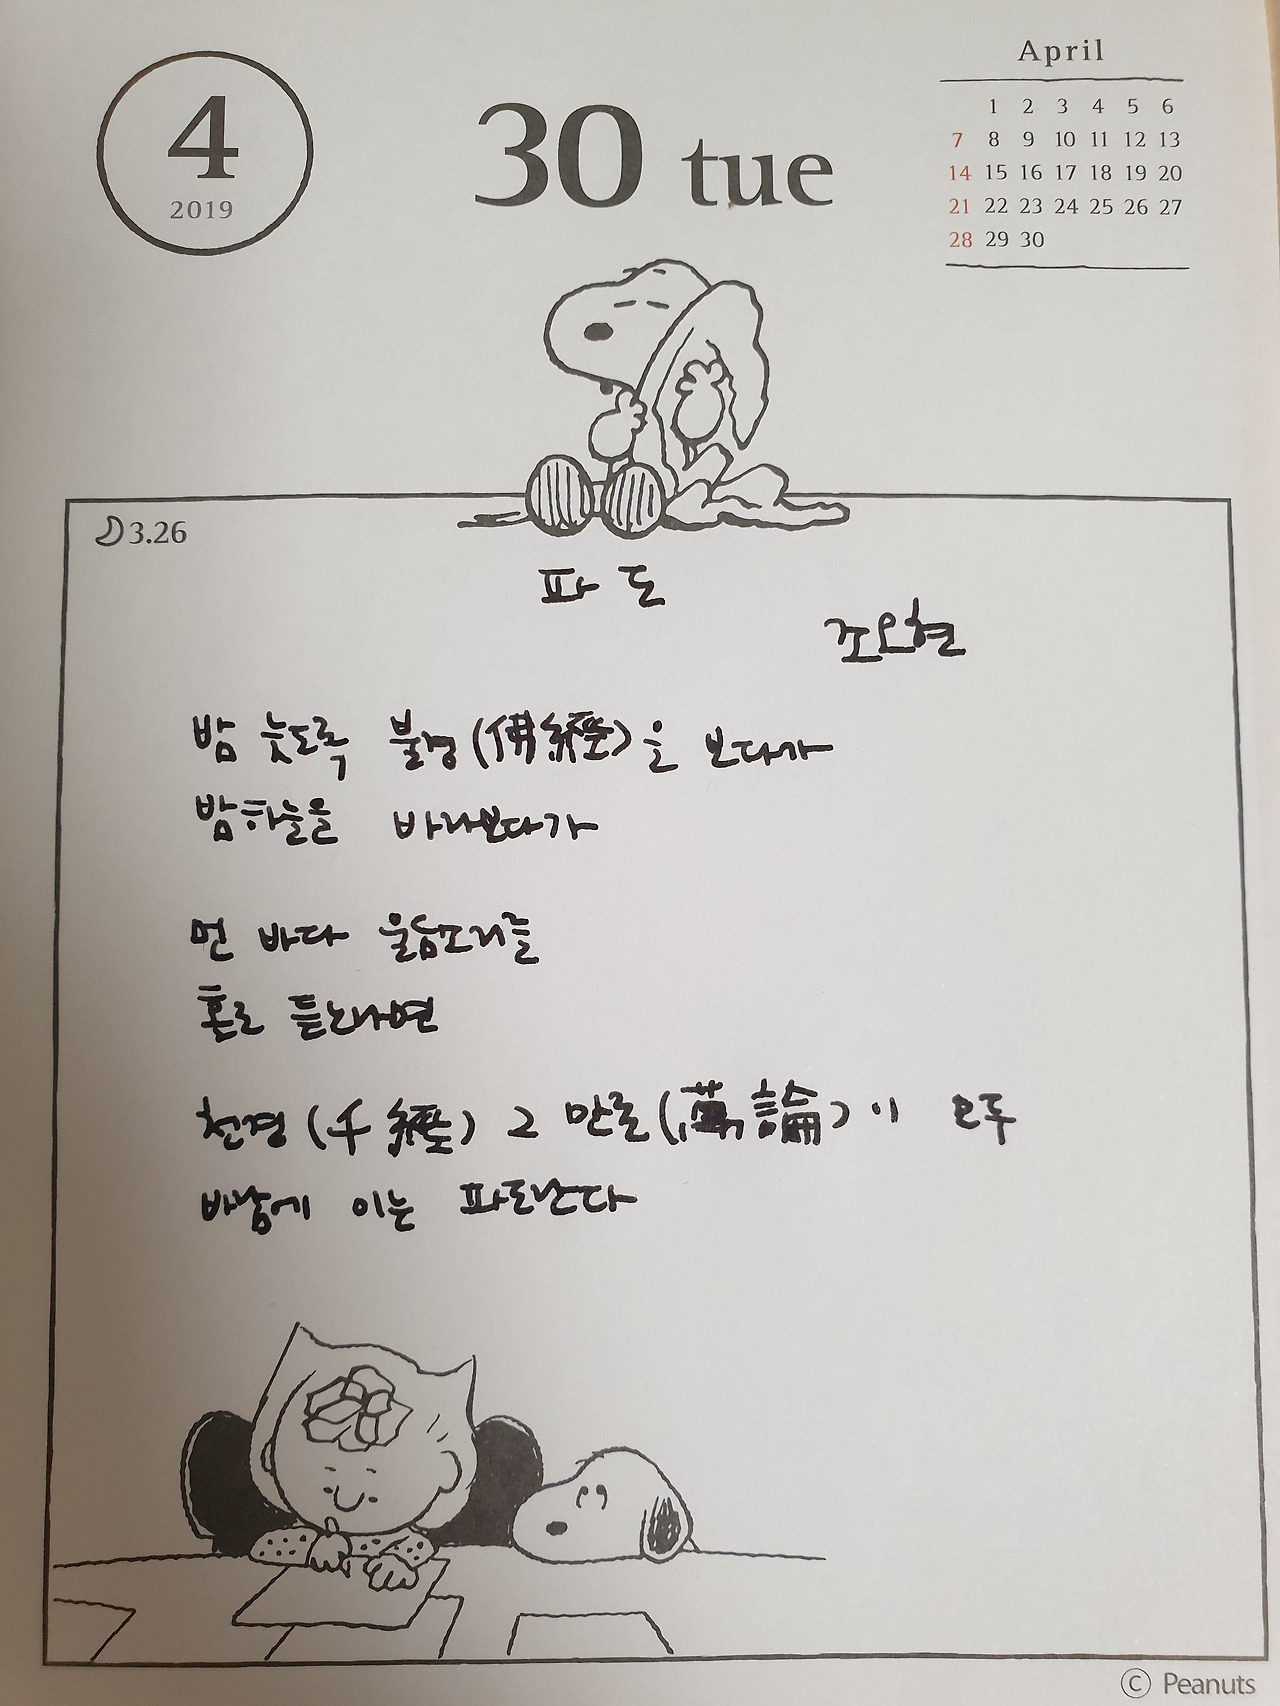 4
2019
30 tue
April
1 2 3 4 5 6
7 8 9 10 11 12 13
14 15 16 17 18 19 20
21 22 23 24 25 26 27
28 29 30
3.26
파도
조오현
밤 늦도록 불경(佛經)을 보다가
밤하늘을 바라보다가
먼 바다 울음소리를
홀로 듣노라면
천경(千經) 그 만론(萬論)이 모두
바람에 이는 파도란다
© Peanuts